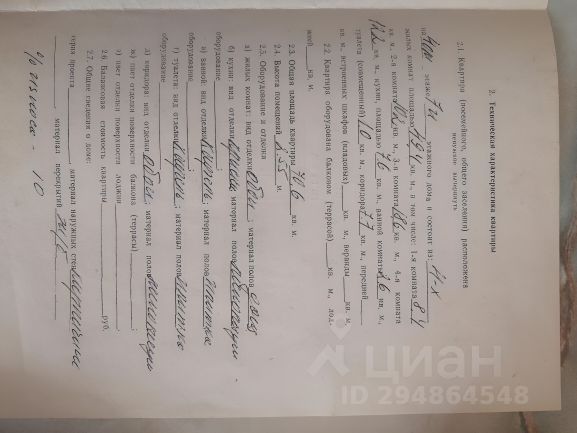 2. Техническая характеристика квартиры
2.1. Квартира (посемейного, общего заселения) расположена
ненужное вычеркнуть
на этаже 7и этажного дома и состоит из: 4-х
жилых комнат площадью 49,4 кв. м., в том числе: 1-я комната 8,4
кв. м., 2-я комната кв. м., 3-я комната кв. м., 4-я комната
кв. м., кухни, площадью 7,6 кв. м., ванной комнаты 2,6 кв. м.,
туалета (совмещенный) 1,0 кв. м., коридора 7,7 кв. м., передней
кв. м., встроенных шкафов (кладовых) кв. м., веранды кв. м.
2.2. Квартира оборудована балконом (террасой) кв. м., лод-
жией кв. м.
2.3. Общая площадь квартиры 70,6 кв. м.
2.4. Высота помещений 2.55 м.
2.5. Оборудование и отделка
а) жилых комнат: вид отделки обои; материал полов
оборудование
б) кухни: вид отделки материал полов
оборудование
в) ванной: вид отделки материал полов плитка
оборудование
г) туалета: вид отделки материал полов плитка
оборудование
д) коридора: вид отделки обои; материал полов линолеум
ж) цвет отделки поверхности балкона (террасы)
з) цвет отделки поверхности лоджии
2.6. Балансовая стоимость квартиры руб.
2.7. Общие сведения о доме:
серия проекта материал наружных стен кирпичный
материал перекрытий ж/б
% износа - 10
циан
ID 294864548